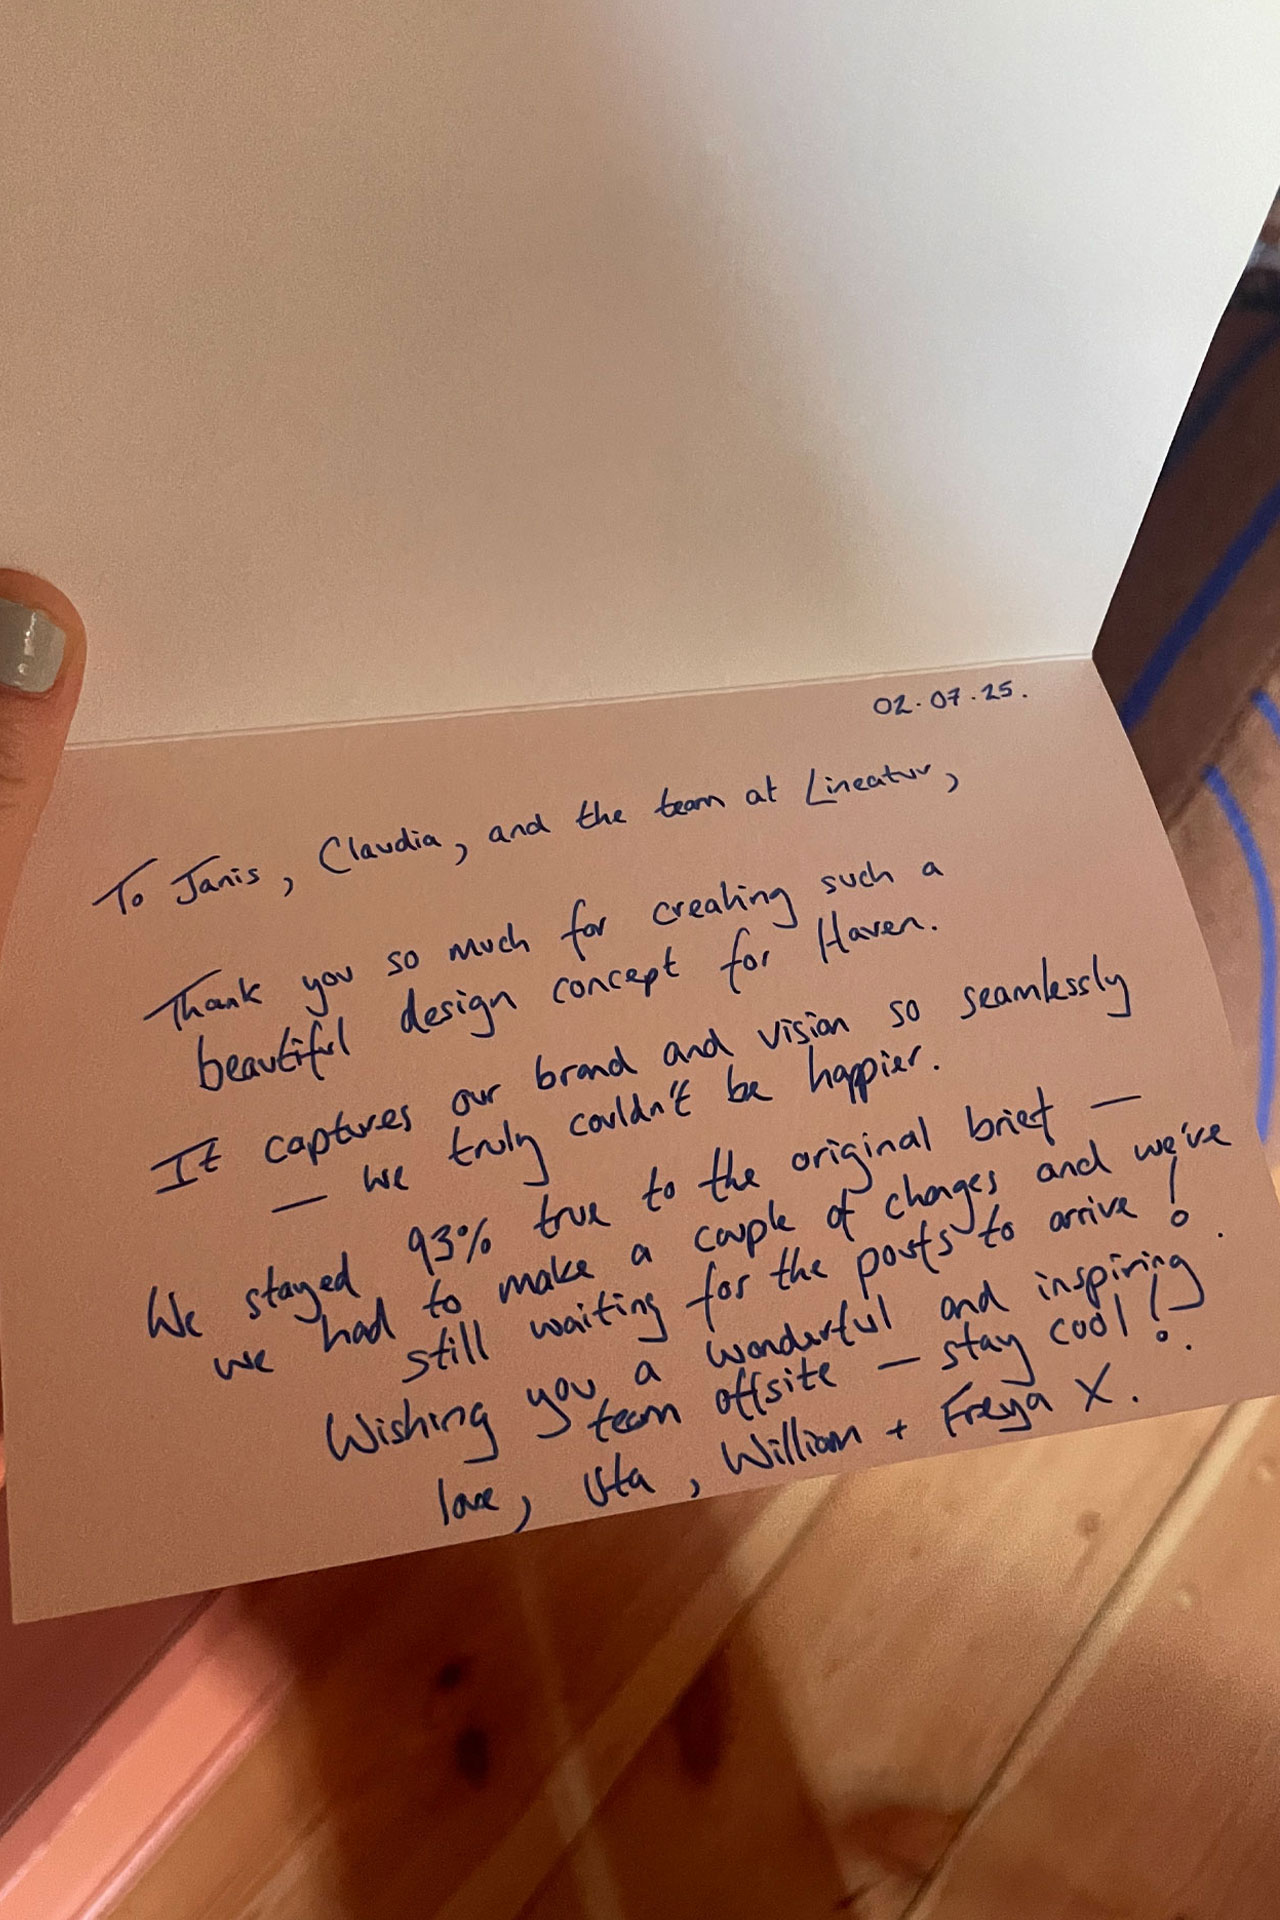 02.07.25.
To Janis, Claudia, and the team at Lineatur,
Thank you so much for creating such a
beautiful design concept for Haven.
It captures our brand and vision so seamlessly
— we truly couldn't be happier.
We stayed 93% true to the original brief —
we had to make a couple of changes and we've
still waiting for the poufs to arrive!
Wishing you a wonderful and inspiring
team offsite — stay cool!
love, Uta, William + Freya X.